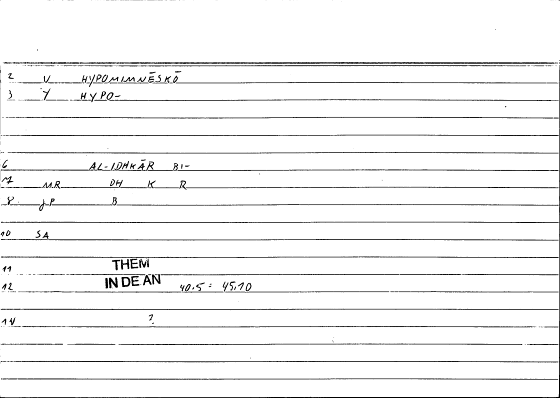 2 V HYPOMIMNĒSKŌ
3 Y HYPO-
6 AL-IDHKĀR BI-
7 MR DH K R
8 JP B
10 SA
11 THEM
12 IN DE AN 40.5 = 45.10
14 ?